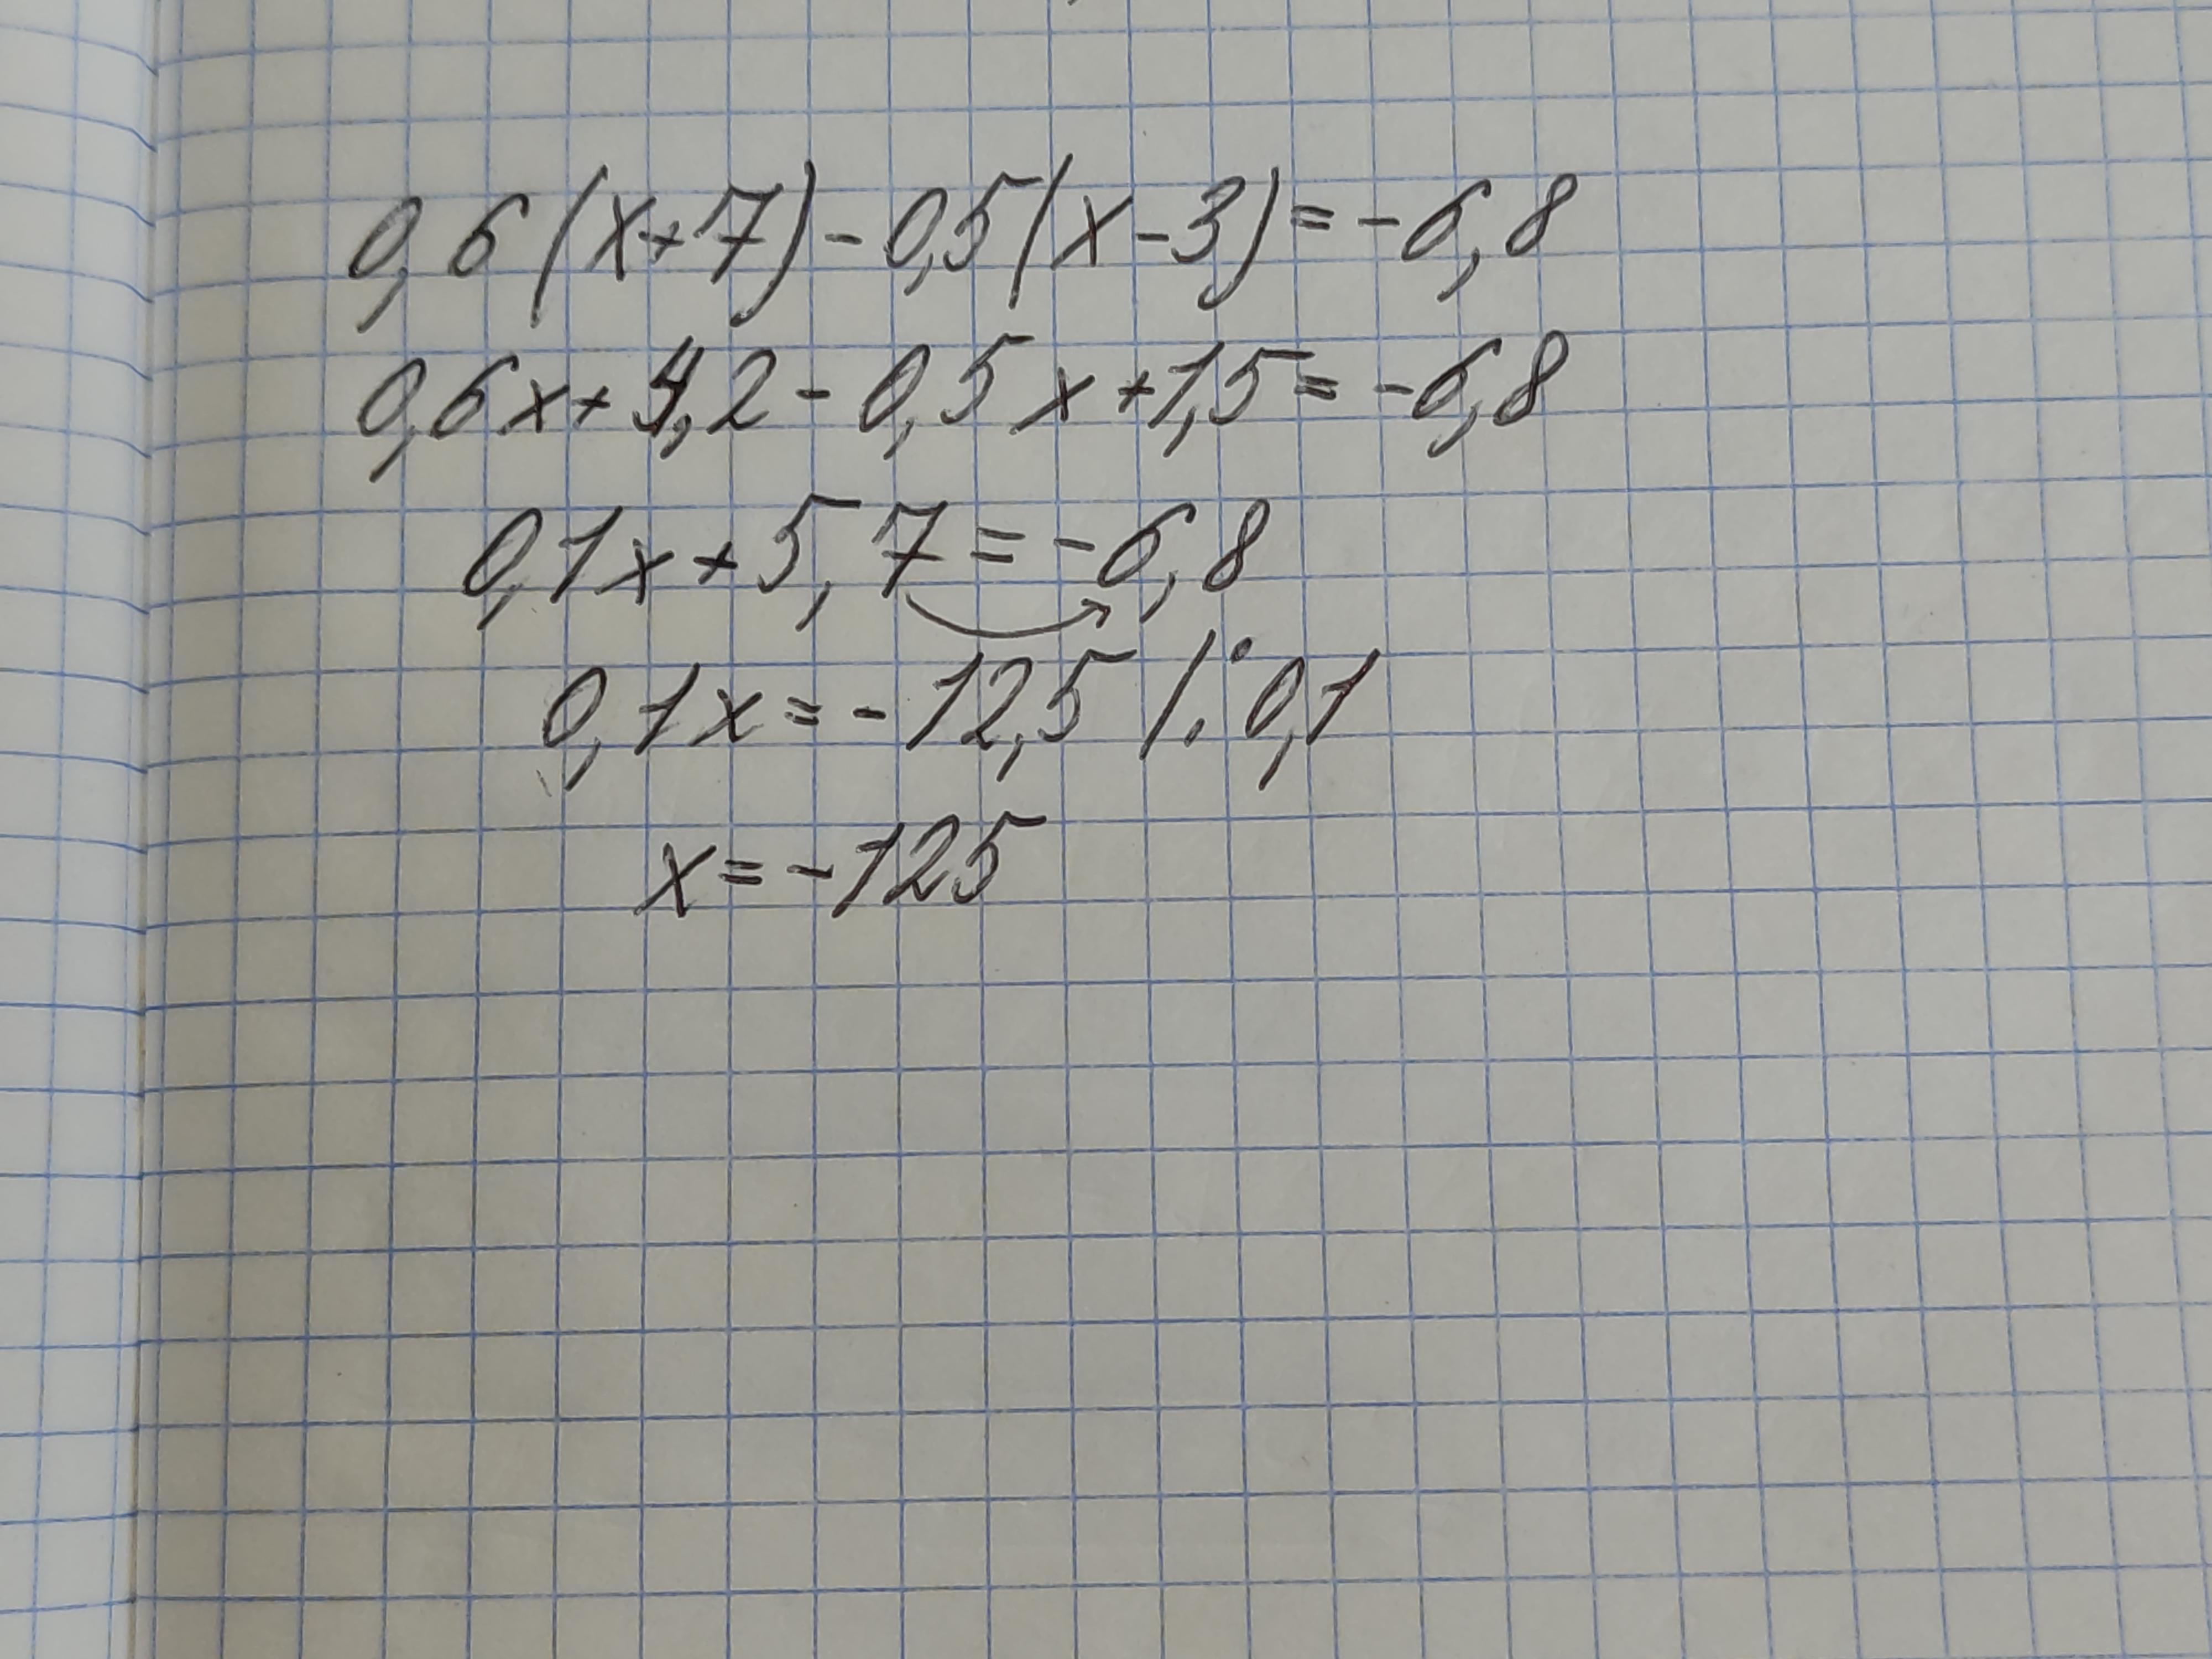 0,6(x+7)-0,5(x-3)=-6,8
0,6x+4,2-0,5x+1,5=-6,8
0,1x+5,7=-6,8
0,1x=-12,5 /:0,1
x=-125